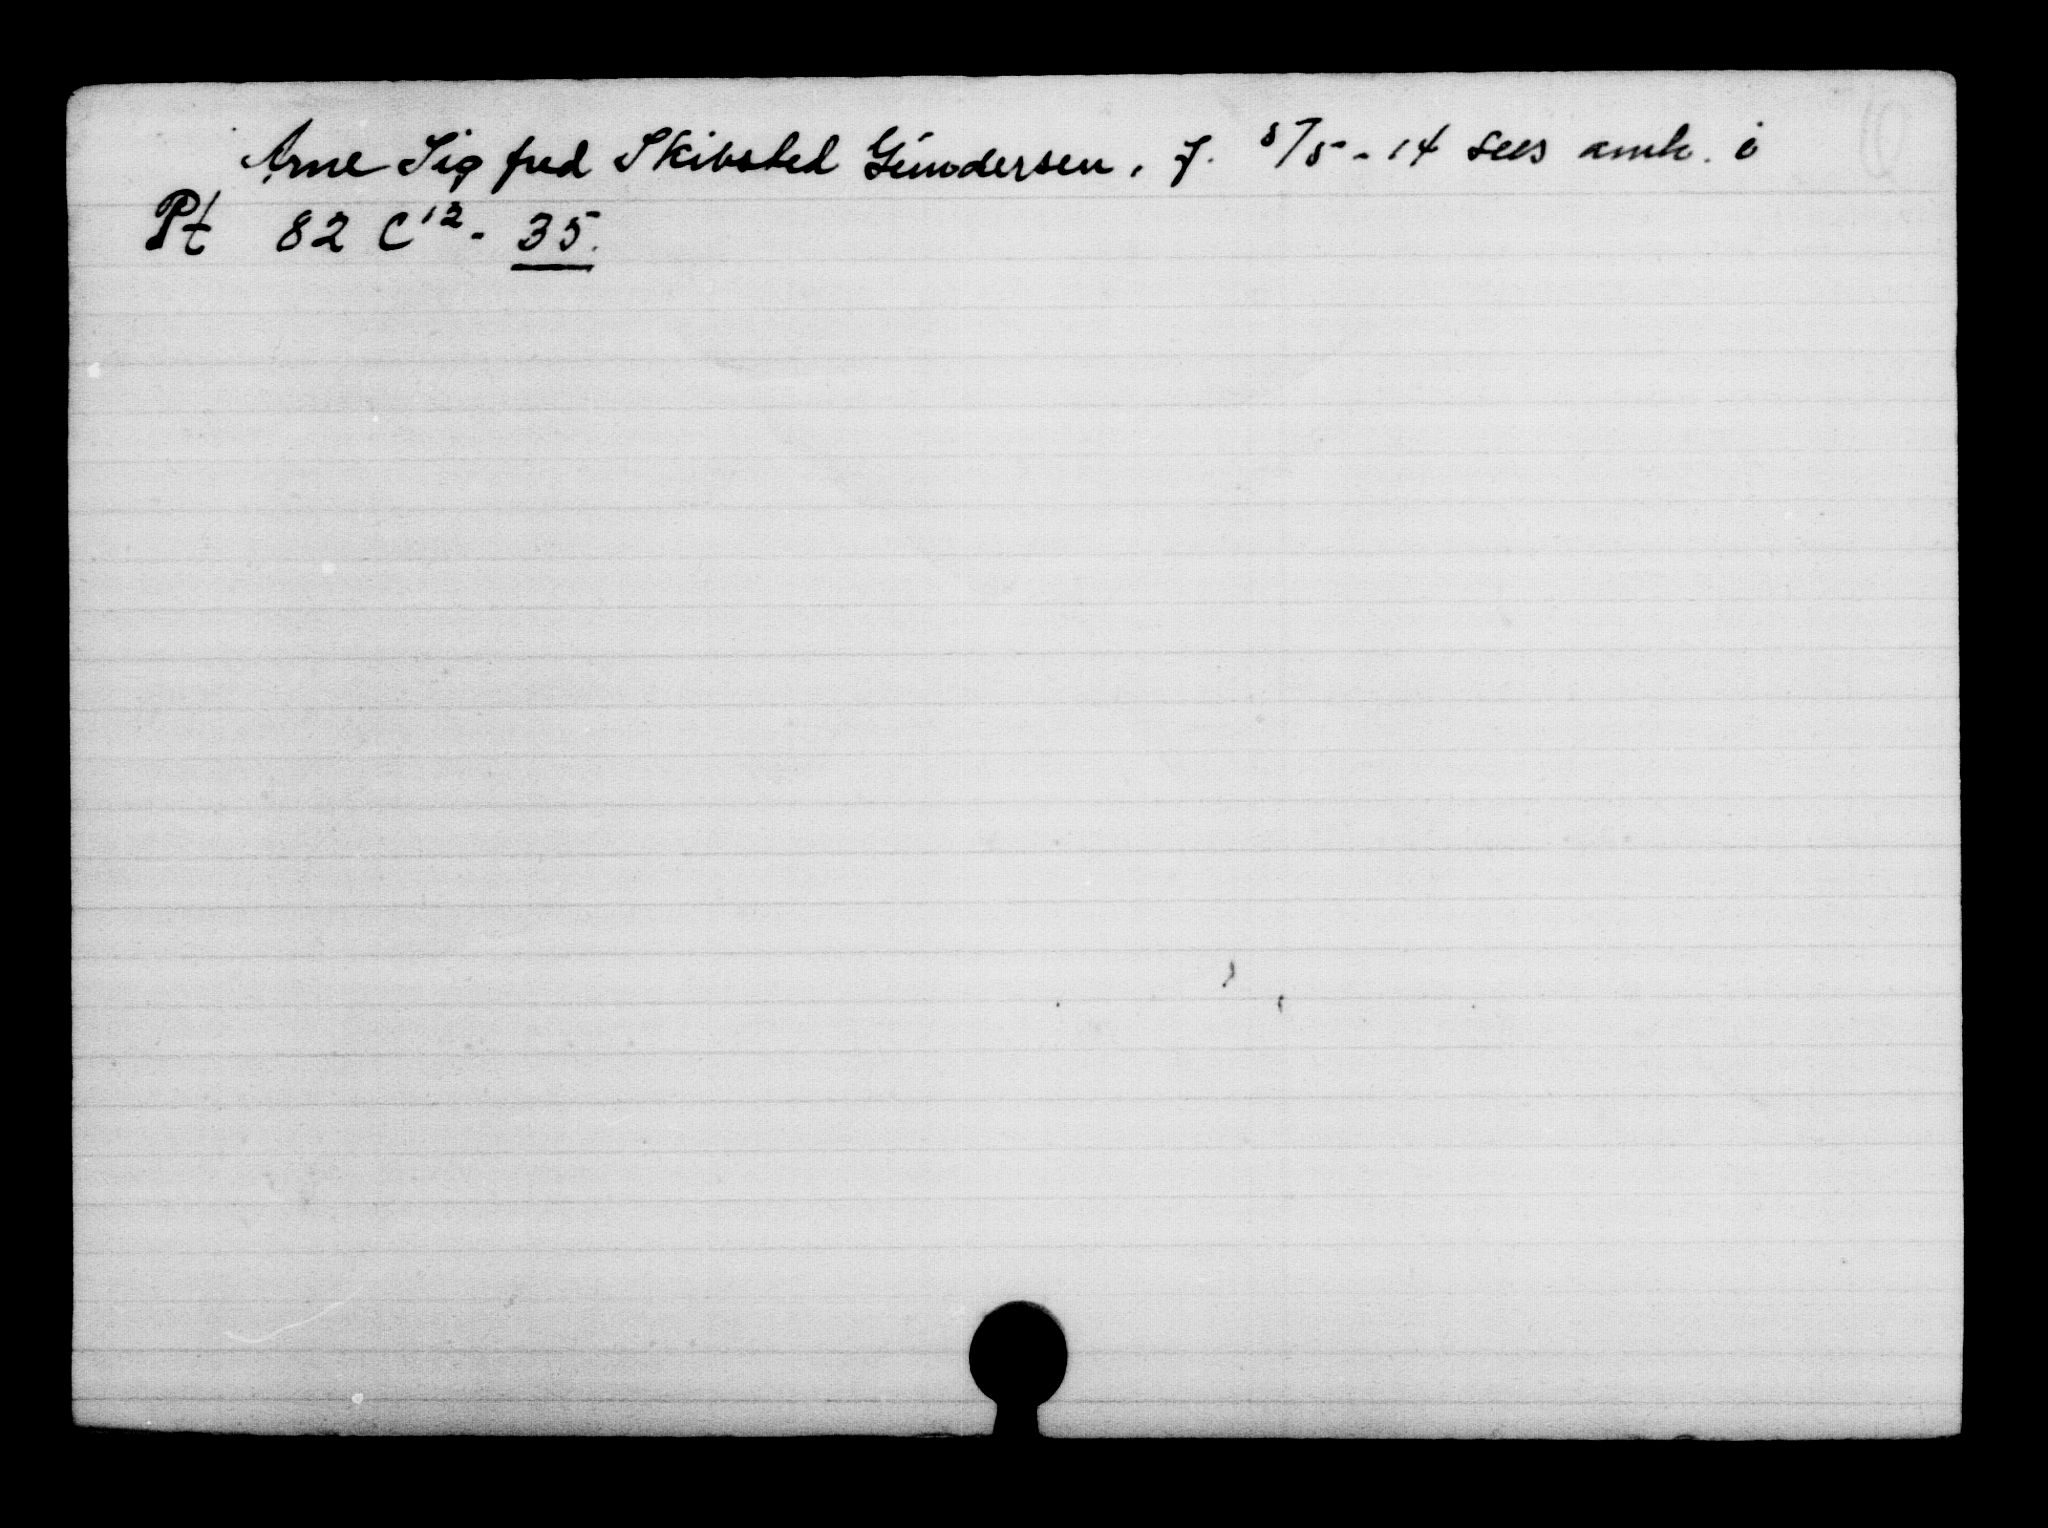 Arne Sigfred Skibsted Gundersen, f. 8/5-14 sees anh. i
Pt 82 C12 - 35.